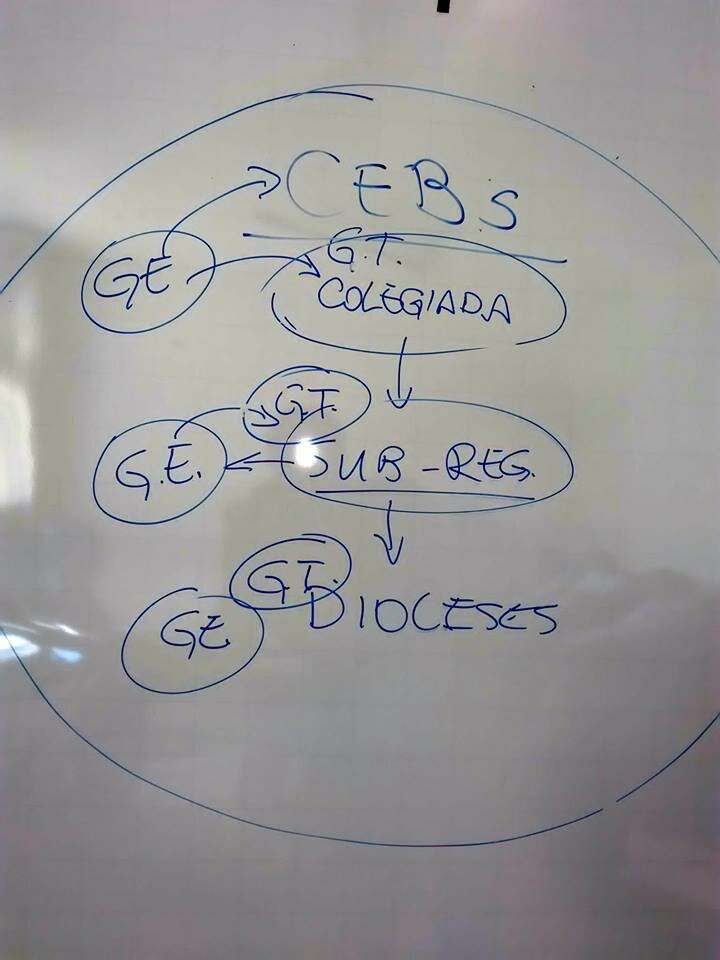 CEBS
GE
G.T.
COLEGIADA
G.T.
G.E.
SUB-REG.
GT.
GE
DIOCESES